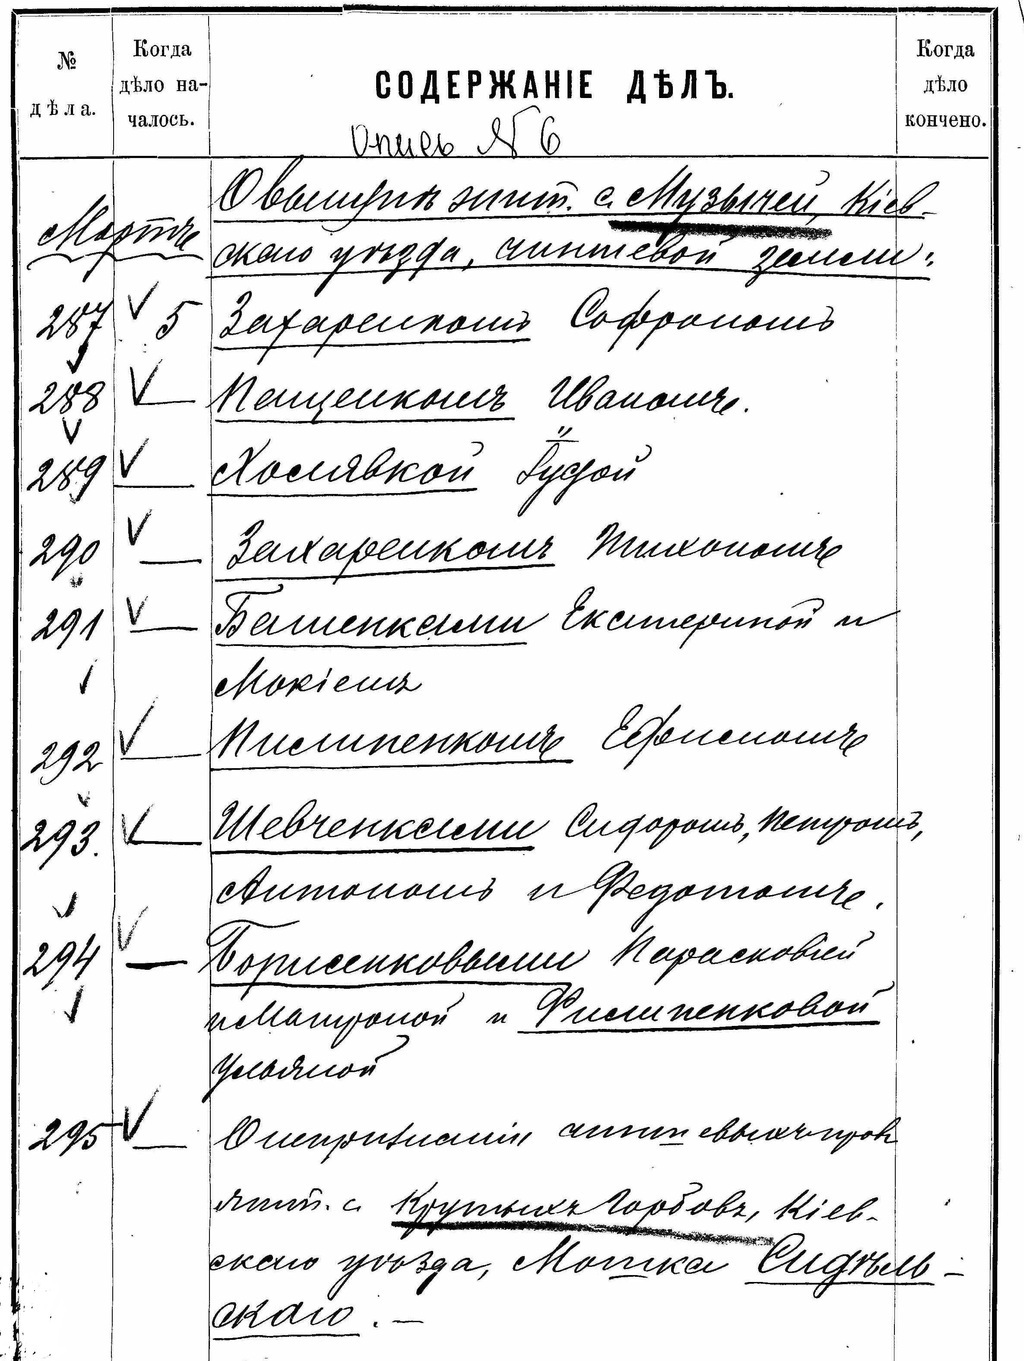 № дѣла.
Когда дѣло на-чалось.
СОДЕРЖАНІЕ ДѢЛЪ.
Когда дѣло кончено.
Опись № 6
О выкупѣ жит. с. Музычей, Кіев-
Мартъ
скаго уѣзда, чиншевой земли:
287 5 Захаренкомъ Софрономъ
288 — Пащенкомъ Иваномъ.
289 — Холявкой Іудой
290 — Захаренкомъ Тихономъ
291 — Башенками Екатериной и
Мокіемъ
292 — Пилипенкомъ Ефимомъ
293. — Шевченками Сидоромъ, Петромъ,
Антономъ и Федотомъ.
294 — Борисенковыми Парасковіей
и Матроной и Филипенковой
Ульяной
295 — О непризнаніи чиншевыхъ прав
жит. с. Крутыхъ Горбовъ, Кіев-
скаго уѣзда, Мошка Сидѣль-
скаго. —